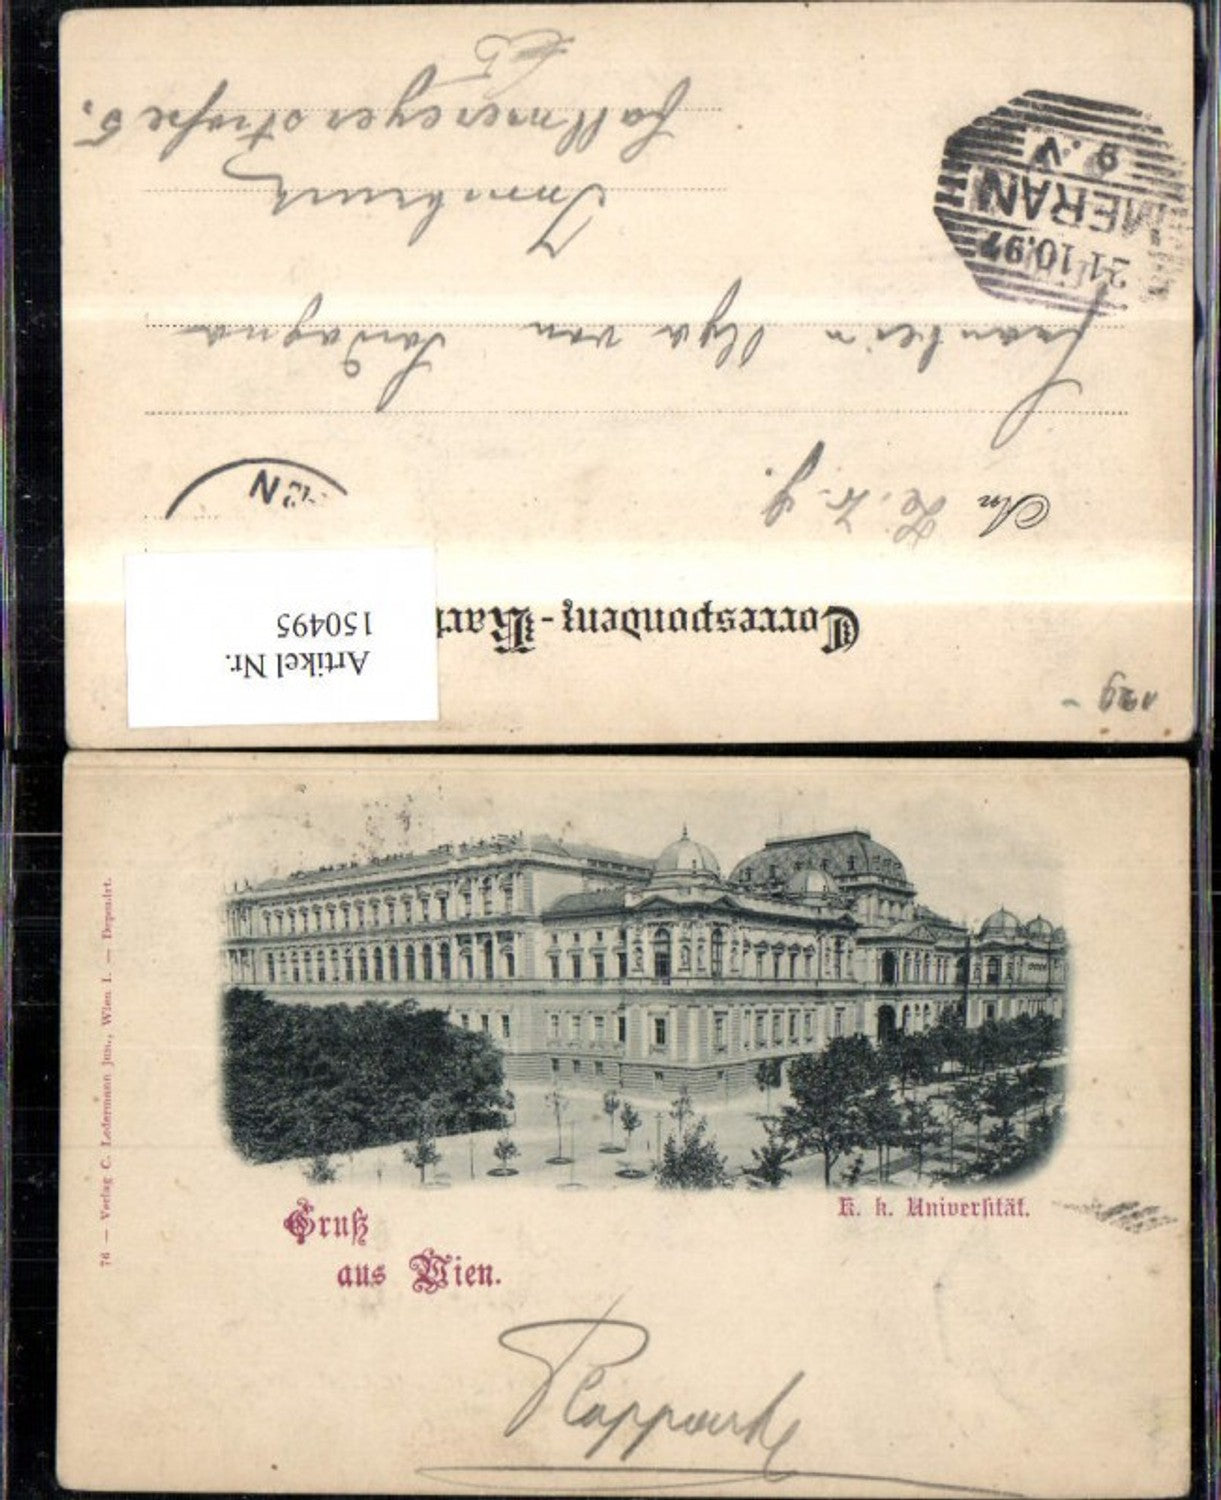 Fallmereyerstraße 5.
Innsbruck
Fräulein Olga von Sardagna
9. V
MERAN
21 10.97
An
EN
Correspondenz-Kart
Artikel Nr.
150495
129 -
76 — Verlag C. Ledermann jun., Wien I. — Deponirt.
K. k. Universität.
Gruß
aus Wien.